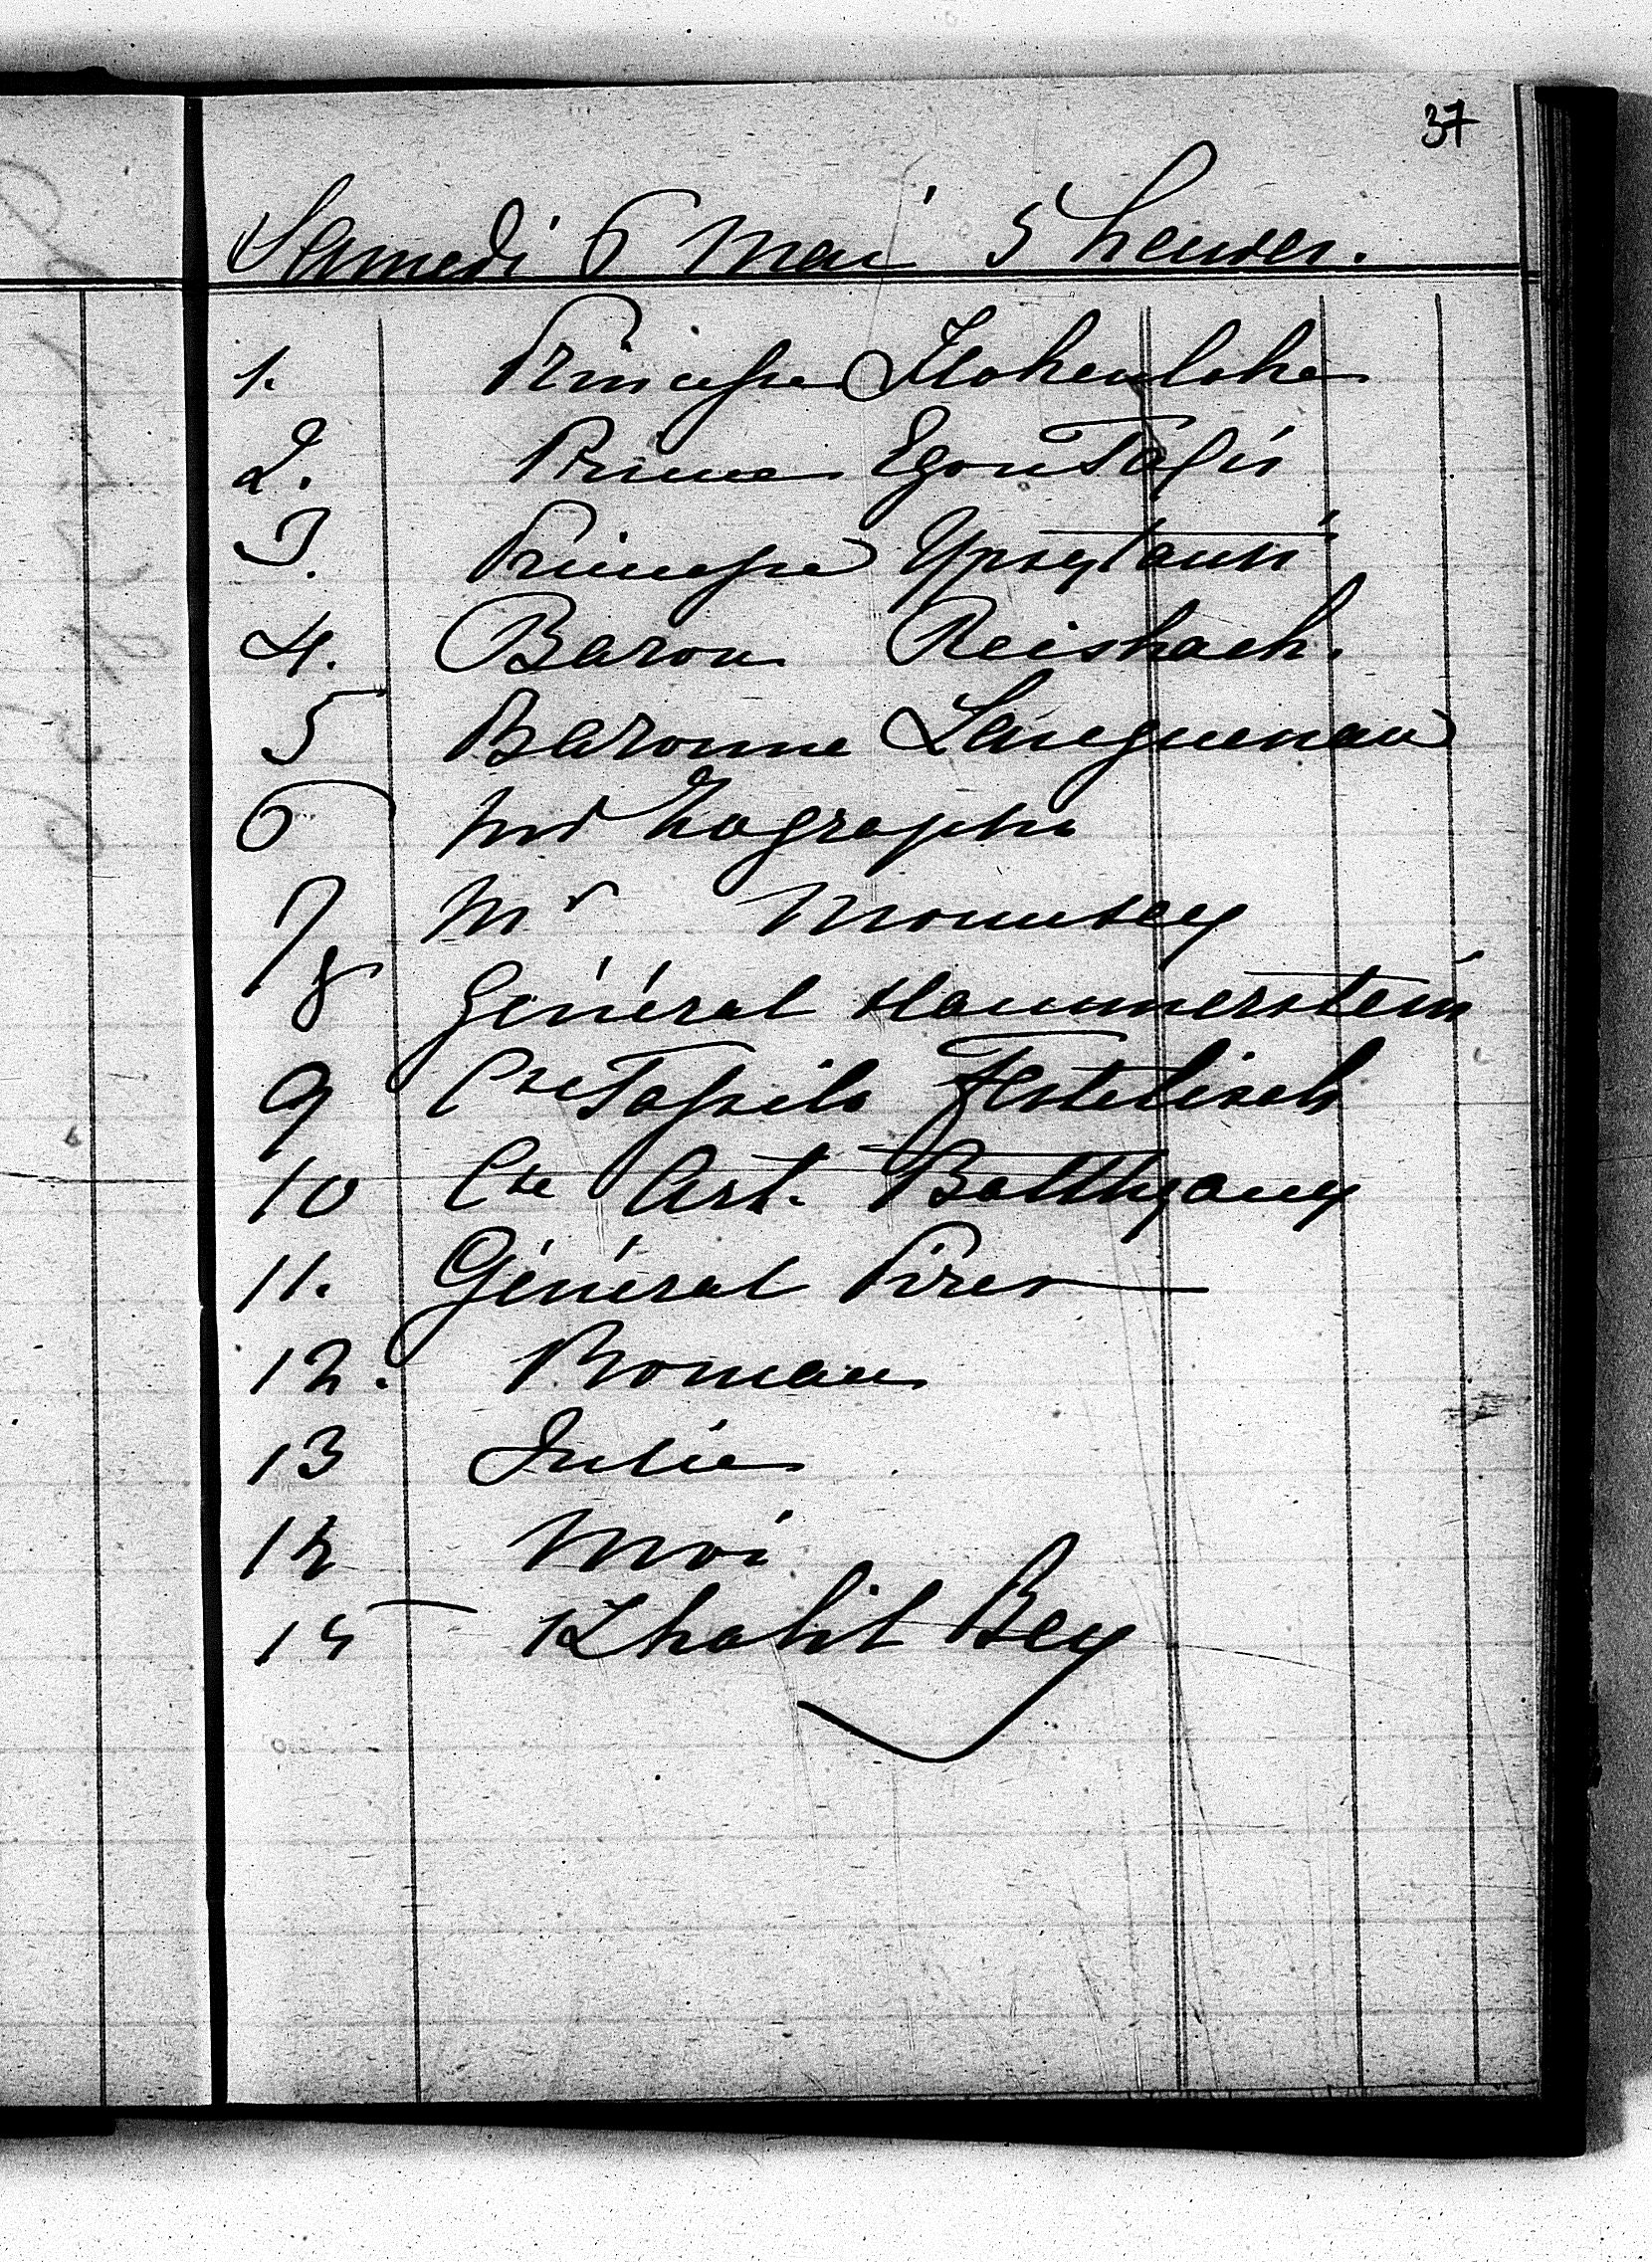 37
Samedi 6 Mai 5 heures.
1. Princesse Hohenlohe
2. Prince Egon Taxis
3. Princesse Ypsylanti
4. Baron Reishach.
5 Baronne Languenau
6 Mr Zographo
7 Mr Mounsey
8 Général Hammerstein
9 Cte Tassilo Festetisch
10 Cte Art. Batthyany
11. Général Pires
12. Roman
13 Julie
14 Moi
15 Khalil Bey